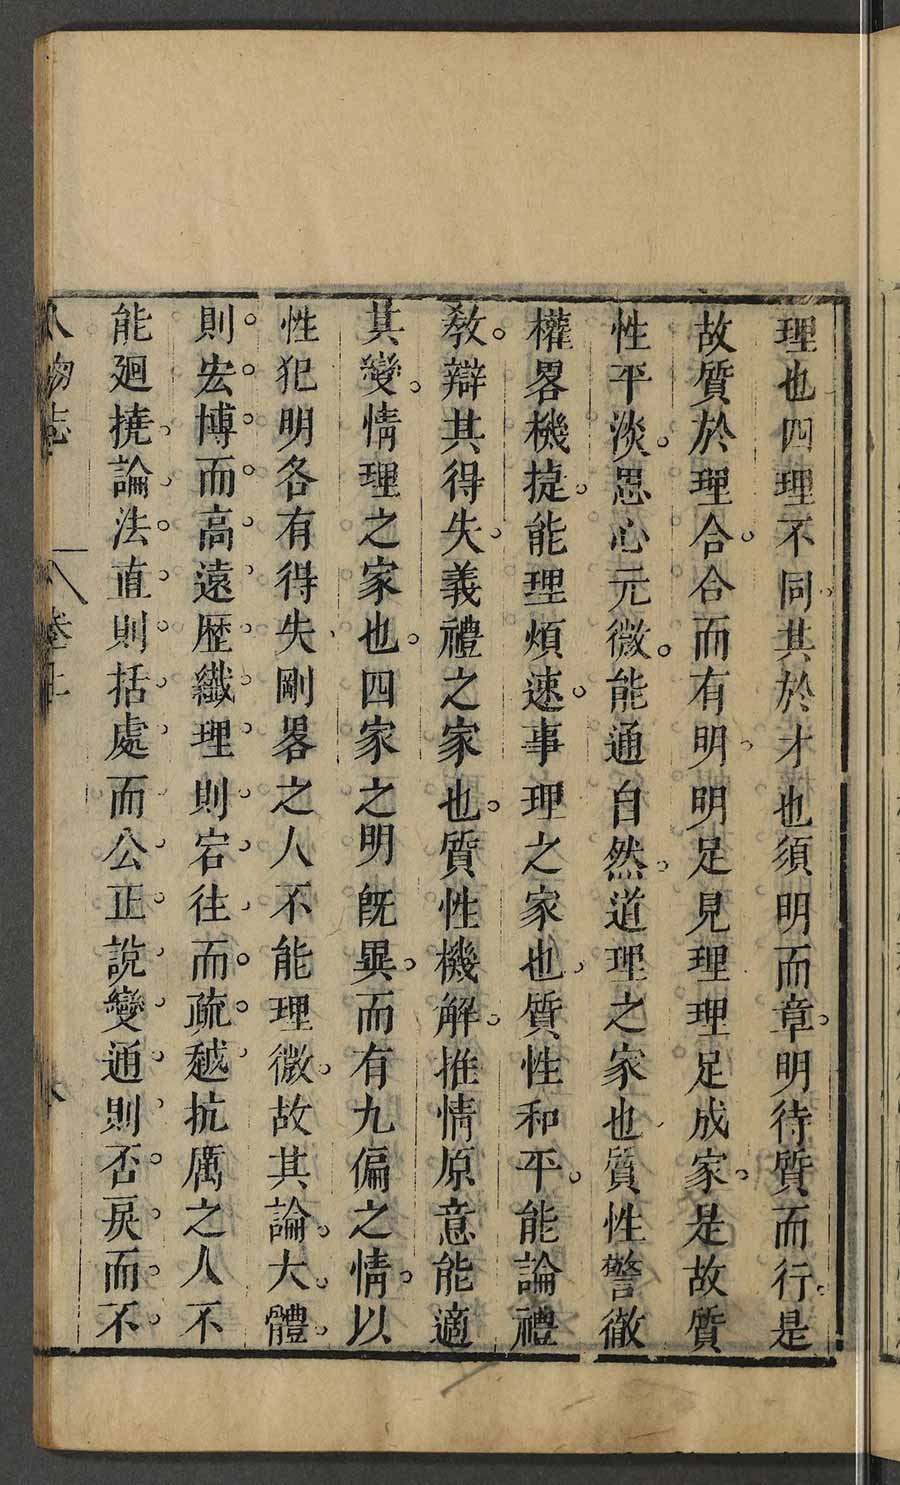 理也四理不同其於才也須明而章明待質而行是
故質於理合合而有明明足見理理足成家是故質
性平淡思心元微能通自然道理之家也質性警徹
權畧機捷能理煩速事理之家也質性和平能論禮
敎辯其得失義禮之家也質性機解推情原意能適
其變情理之家也四家之明旣異而有九偏之情以
性犯明各有得失剛畧之人不能理微故其論大體
則宏博而高遠歴纖理則宕往而疏越抗厲之人不
能廻撓論法直則括處而公正說變通則否戾而不
人物志
卷上